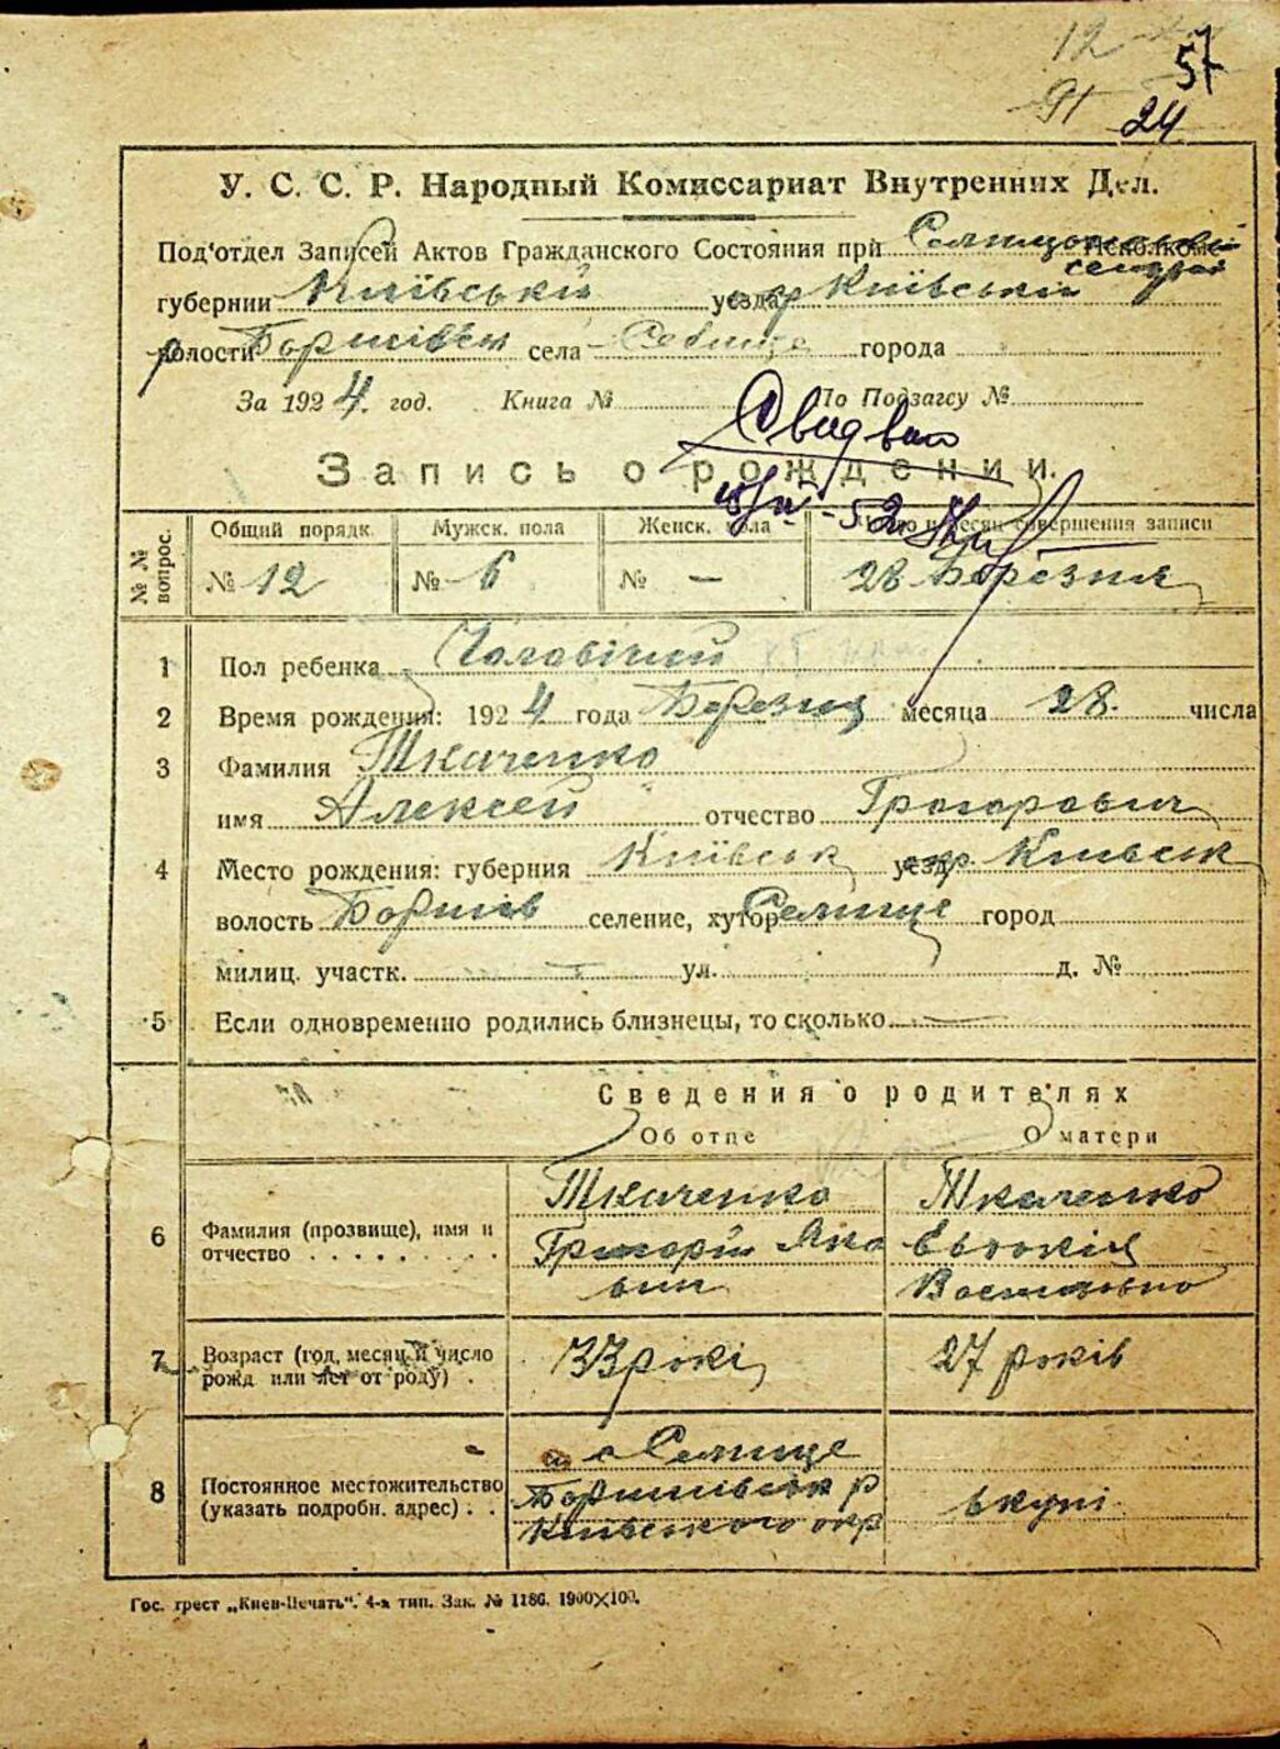 57
24
У. С. С. Р. Народный Комиссариат Внутренних Дел.
Под'отдел Записей Актов Гражданского Состояния при Исполкоме
губернии Київській уезда окр Київські
волости р Баришівськ села Селище города
За 1924 год. Книга № По Подзагсу №
Запись о рождении.
№№ вопрос. Общий порядк. Мужск. пола Женск. пола Число и месяц совершения записи
№ 12 № 6 № — 28 Березня
1 Пол ребенка Чоловічий
2 Время рождения: 1924 года Березня месяца 28. числа
3 Фамилия Ткаченко
имя Алексей отчество Григорович
4 Место рождения: губерния Київськ уезд окр. Київськ
волость Баришів селение, хутор Селище город
милиц. участк. ул. д. №
5 Если одновременно родились близнецы, то сколько —
Сведения о родителях
Об отце О матери
6 Фамилия (прозвище), имя и отчество Ткаченко Ткаченко
Григорій Яко Евдокія
вич Васильовна
7 Возраст (год, месяц и число рожд или лет от роду) 33 рокі 27 років
8 Постоянное местожительство (указать подробн. адрес) с Селище
Баришівськ р вкупі
Київського окр
Гос. трест „Киев-Печать". 4-я тип. Зак. № 1186. 1900×100.